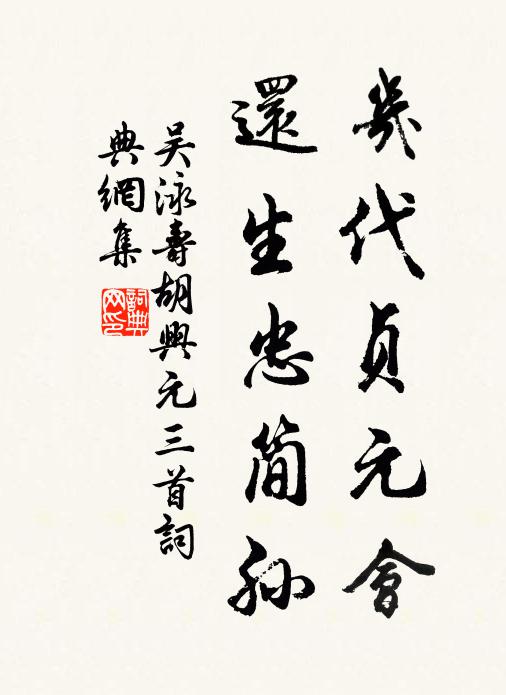 幾代貞元會
還生忠簡孫
吴泳壽胡興元三首詞
典網集
詞典网印